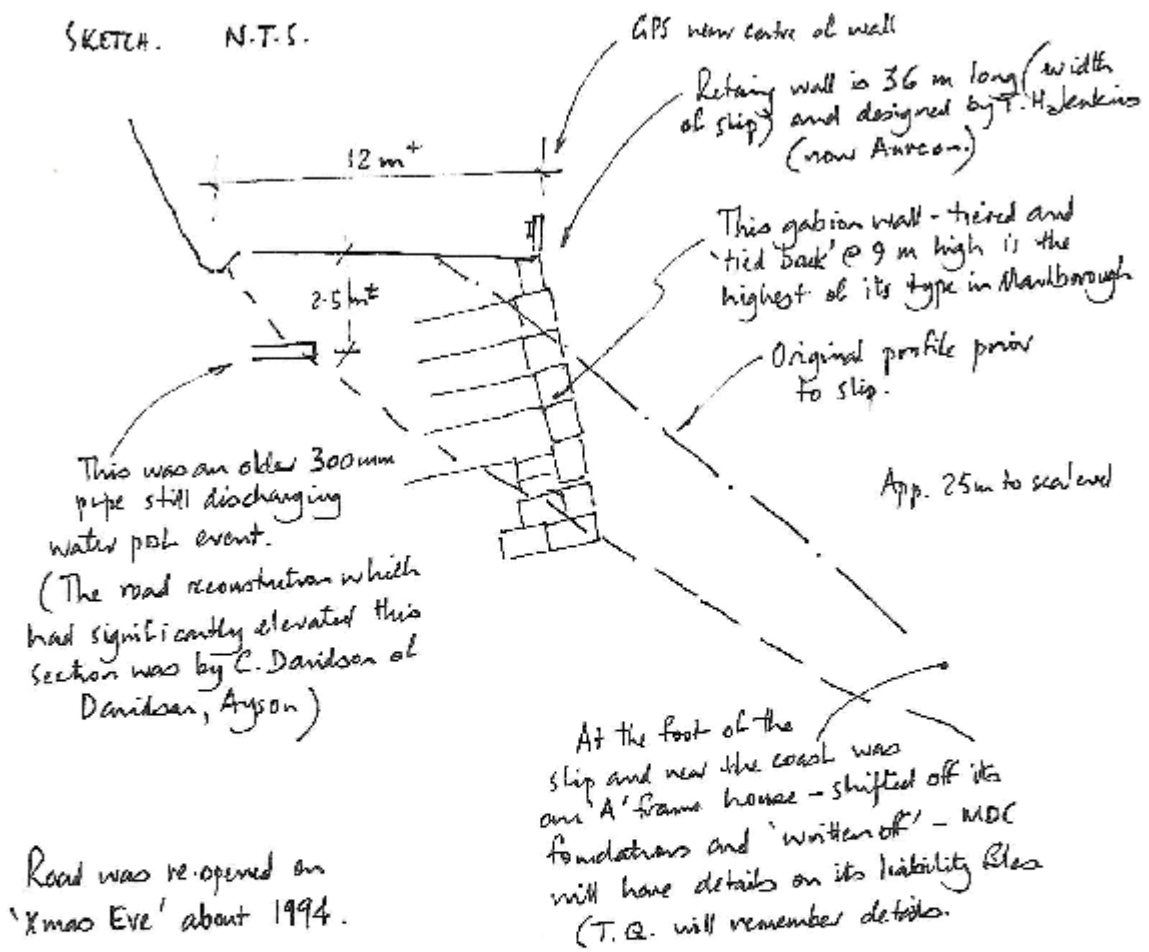 SKETCH. N.T.S.
GPS near centre of wall
Retaing wall is 36 m long (width
of slip) and designed by T. H. Jenkins
(now Aurecon.)
12 m+
This gabion wall - tiered and
'tied back' @ 9 m high is the
highest of its type in Marlborough
2.5 m±
Original profile prior
to slip.
This was an older 300mm
pipe still discharging
water post event.
(The road reconstruction which
had significantly elevated this
section was by C. Davidson of
Davidson, Ayson)
App. 25m to sea level
At the foot of the
slip and near the coast was
an 'A' frame house - shifted off its
foundations and 'written off' - MDC
will have details on its liability files
(T.Q. will remember details.
Road was re-opened on
'Xmas Eve' about 1994.